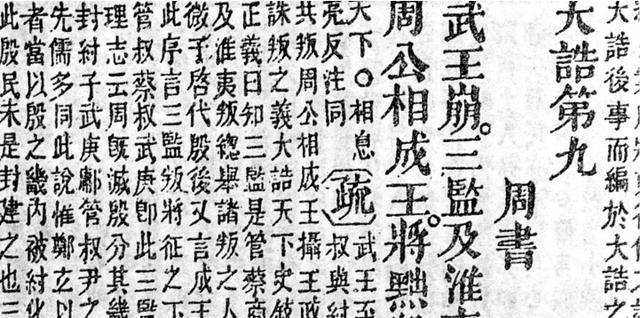 大誥後事而編於大誥之
大誥第九
周書
武王崩。三監及淮
周公相成王。將黜
天下〇相息
亮反注同
疏
武王至
叔與紂
共叛周公相成王攝王政
誅叛之義大誥天下史敘
正義曰知三監是管蔡商
及淮夷叛總舉諸叛之人
微子啓代殷後又言成王
此序言三監叛將征之下
管叔蔡叔武庚卽此三監
理志云周旣滅殷分其畿
封紂子武庚鄘管叔尹之
先儒多同此說惟鄭玄以
者當以殷之畿內被紂化
此殷民未是封建之也三